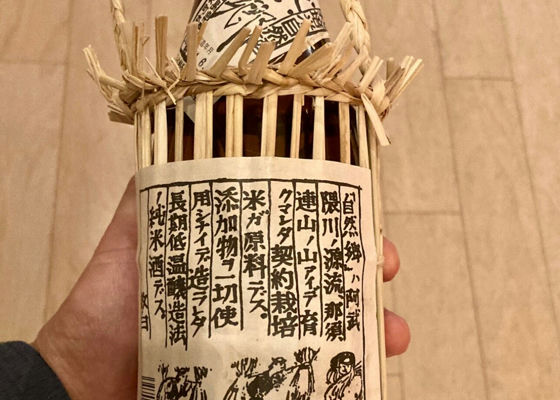 自然
「自然郷」ハ阿武
隈川ノ源流那須
連山ノ山アイデ育
クマレタ契約栽培
米ガ原料デス。
添加物ヲ一切使
用シナイデ造ラレタ
長期低温醸造法
ノ純米酒デス。
敬白